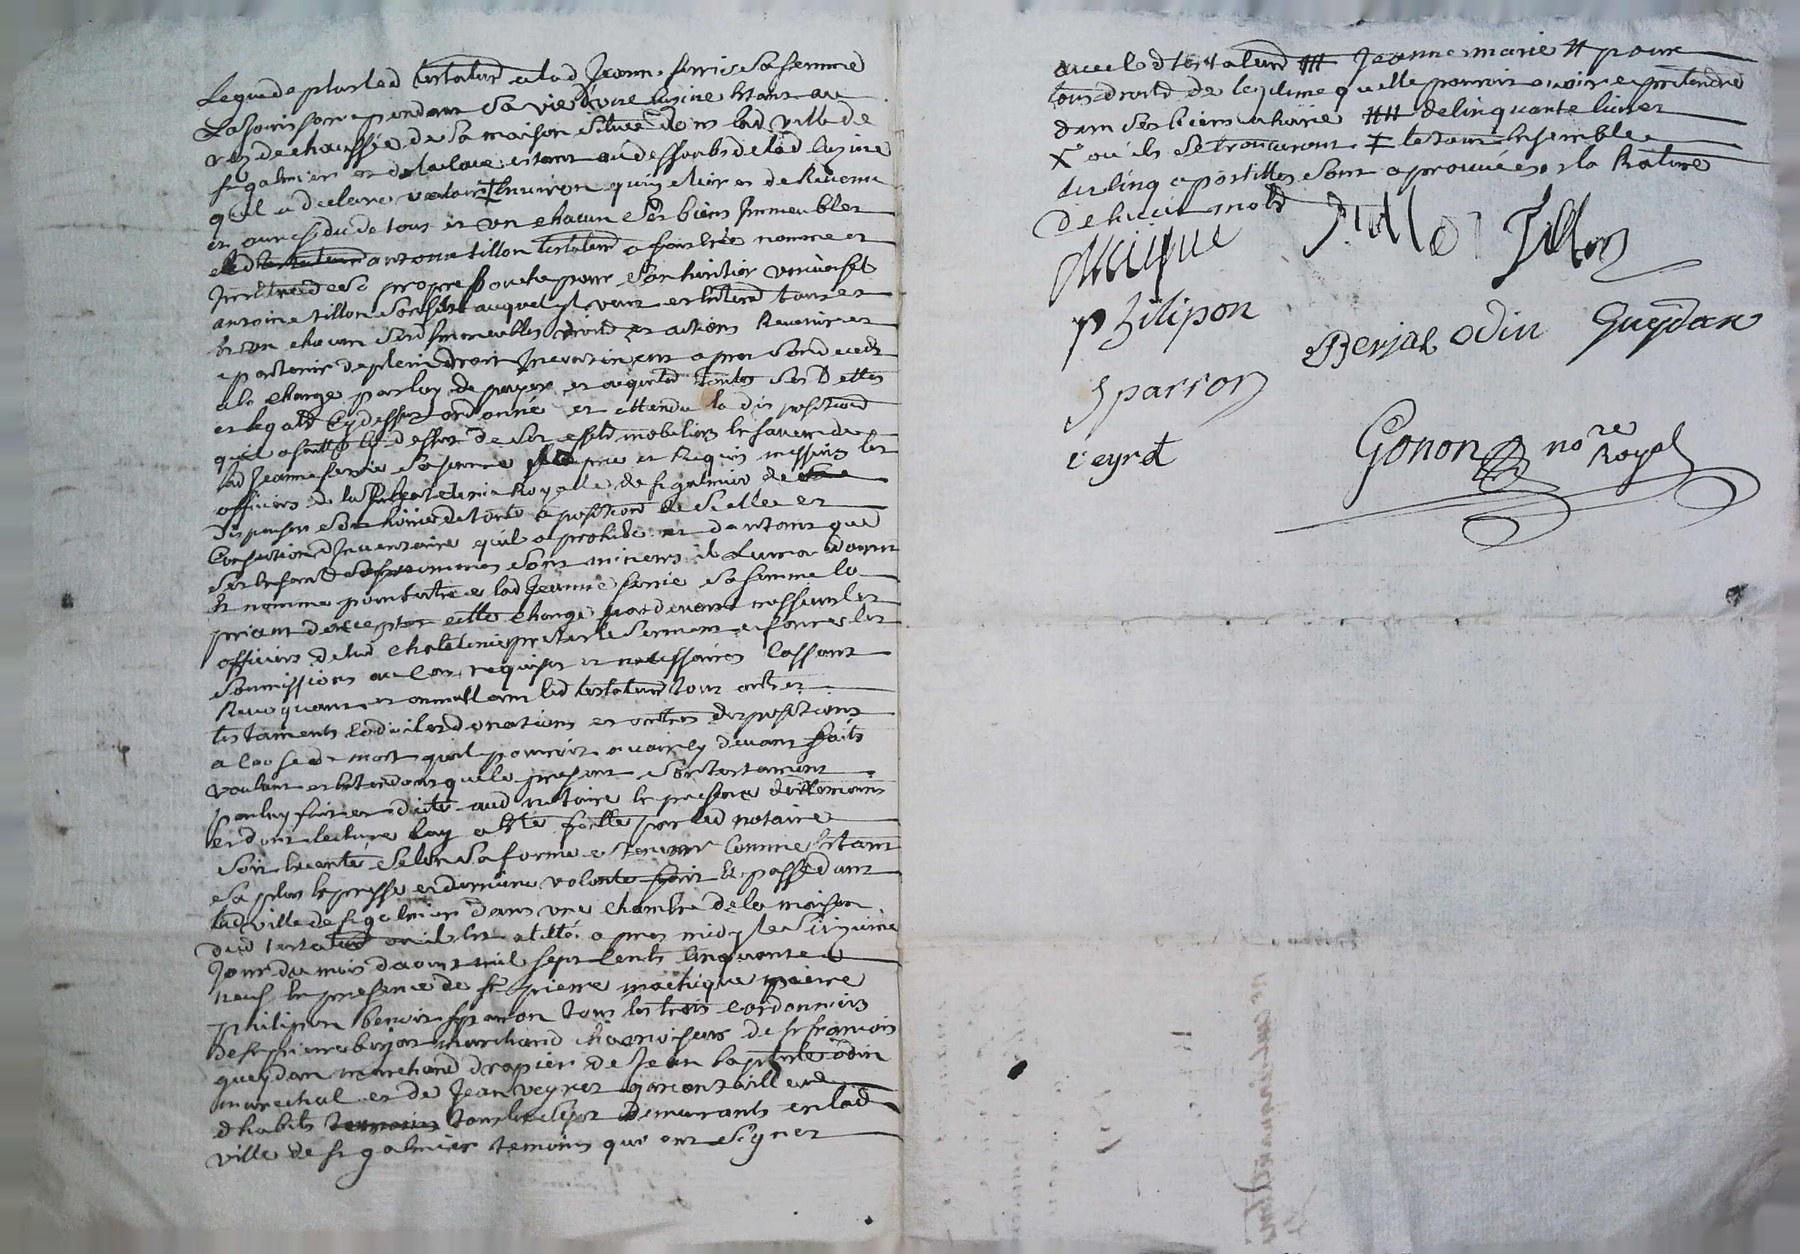 Legue de plus led testateur a lad Jeanne ferrie sa femme
La jouissance pendant sa vie d'une cuzine estant au
rez de chaussée de sa maison située dans lad ville de
st galmier et de la cave estant au dessoubs de lad cuzine
quil a declare valoir ‡ environ quinze livres de Revenu
et au residu de tous et un chacun ses biens Immeubles
led testateur antoine tillon testateur a fait crée nomme et
Institué de sa propre bouche pour son heritier universel
antoine tillon son fils auquel il veut et entend tous et
un chacun sesd Immeubles droits et actions Revenir et
apartenir de plein droit Incontinent apres son deceds
a la charge par luy de payer et acquiter toutes ses Dettes
et legats Cy dessus ordonné et attendu la disposition
quil a faitte cy dessus de ses effets mobiliers en faveur de
lad Jeanne ferrie sa femme prie et Requis messieurs les
officiers de la Chatelenie Royalle de st galmier de
dispenser son hoirie de toute aposition de scellé et
Confection d'Inventaire quil a prohibé et dautant que
ses enfants sont mineurs il leur a donné
et nomme pour tutrice lad Jeanne ferrie sa femme la
priant d'accepter cette charge par devant messieurs les
officiers de lad chatelenie prester le serment et faire les
soumissions au cas requises et necessaires Cassant
Revoquant et annullant led testateur tous autres
testaments codiciles donations et autres dispositions
a cause de mort quil pourroit avoir cy devant faits
voulant et entendant que le present son testament
par luy fait et dicté aud notaire en presence des temoins
et dont lecture luy a esté faitte par led notaire
soit executé selon sa forme et teneur comme estant
sa plus expresse et derniere volonté fait et passé dans
lad ville de st galmier dans une chambre de la maison
dud testateur ou il est alitté apres midy le cinquieme
jour du mois daoust mil sept cents cinquante
neuf en presence de sr pierre mathique pierre
philipon benoit sparron tous les trois cordonniers
de sr pierre berjat marchand chamoiseur de sr francois
gueydan marchand drapier de Jean baptiste odin
marechal et de Jean veyret garcon tailleur
d'habits tous les sept demeurants en lad
ville de st galmier temoins qui ont signes
avec led testateur ǂǂǂ Jeanne marie ǂǂ pour
tous droits de legitime quelle pourroit avoir et pretendre
dans ses biens et hoirie ǂǂǂ de cinquante livres
X ou ils se trouveront ‡ le tout ensemble
les cinq apostilles sont aprouvées et la Rature
de huit mots
Matique Tillon
philipon
Berjat odin Gueydan
Sparron
veyret
Gonon nore
Royal